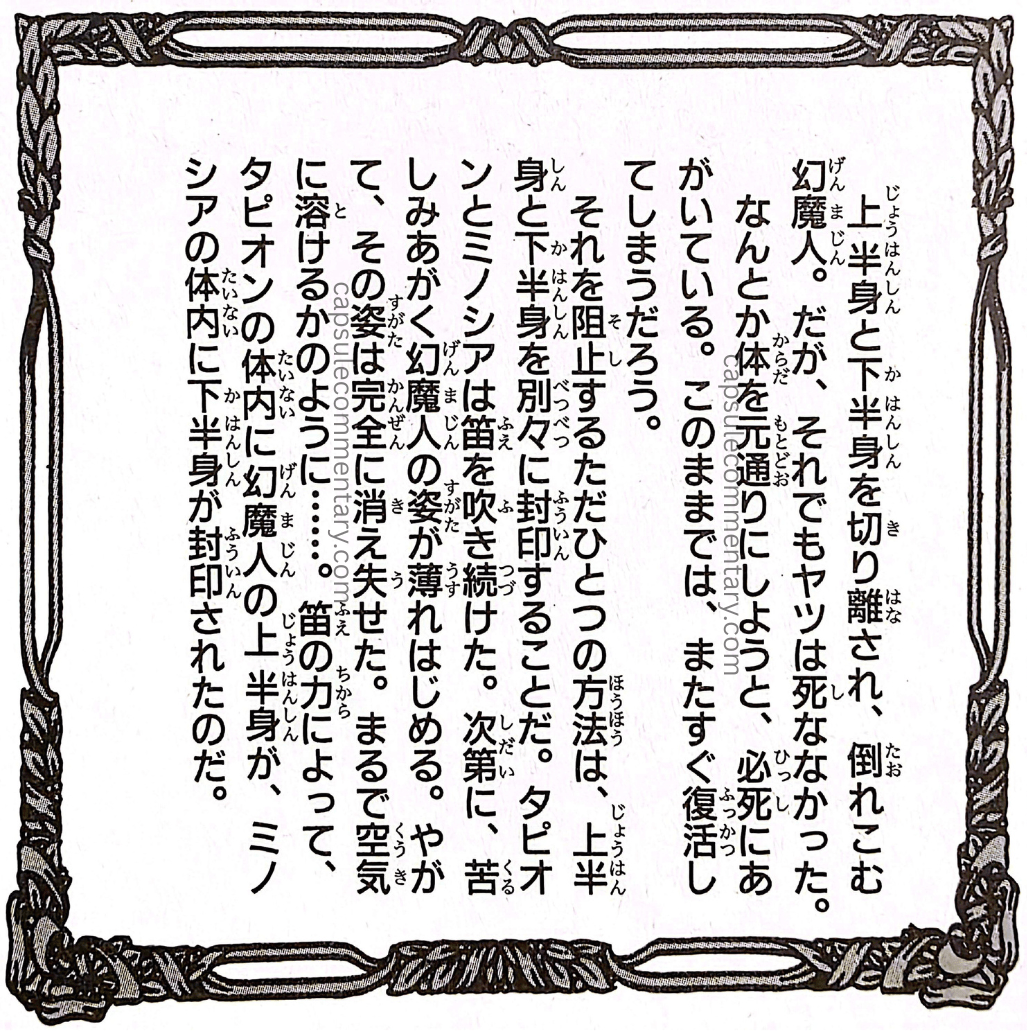 上半身と下半身を切り離され、倒れこむ
幻魔人。だが、それでもヤツは死ななかった。
なんとか体を元通りにしようと、必死にあ
がいている。このままでは、またすぐ復活し
てしまうだろう。
それを阻止するただひとつの方法は、上半
身と下半身を別々に封印することだ。タピオ
ンとミノシアは笛を吹き続けた。次第に、苦
しみあがく幻魔人の姿が薄れはじめる。やが
て、その姿は完全に消え失せた。まるで空気
に溶けるかのように……。笛の力によって、
タピオンの体内に幻魔人の上半身が、ミノ
シアの体内に下半身が封印されたのだ。
capsulecommentary.com
capsulecommentary.com